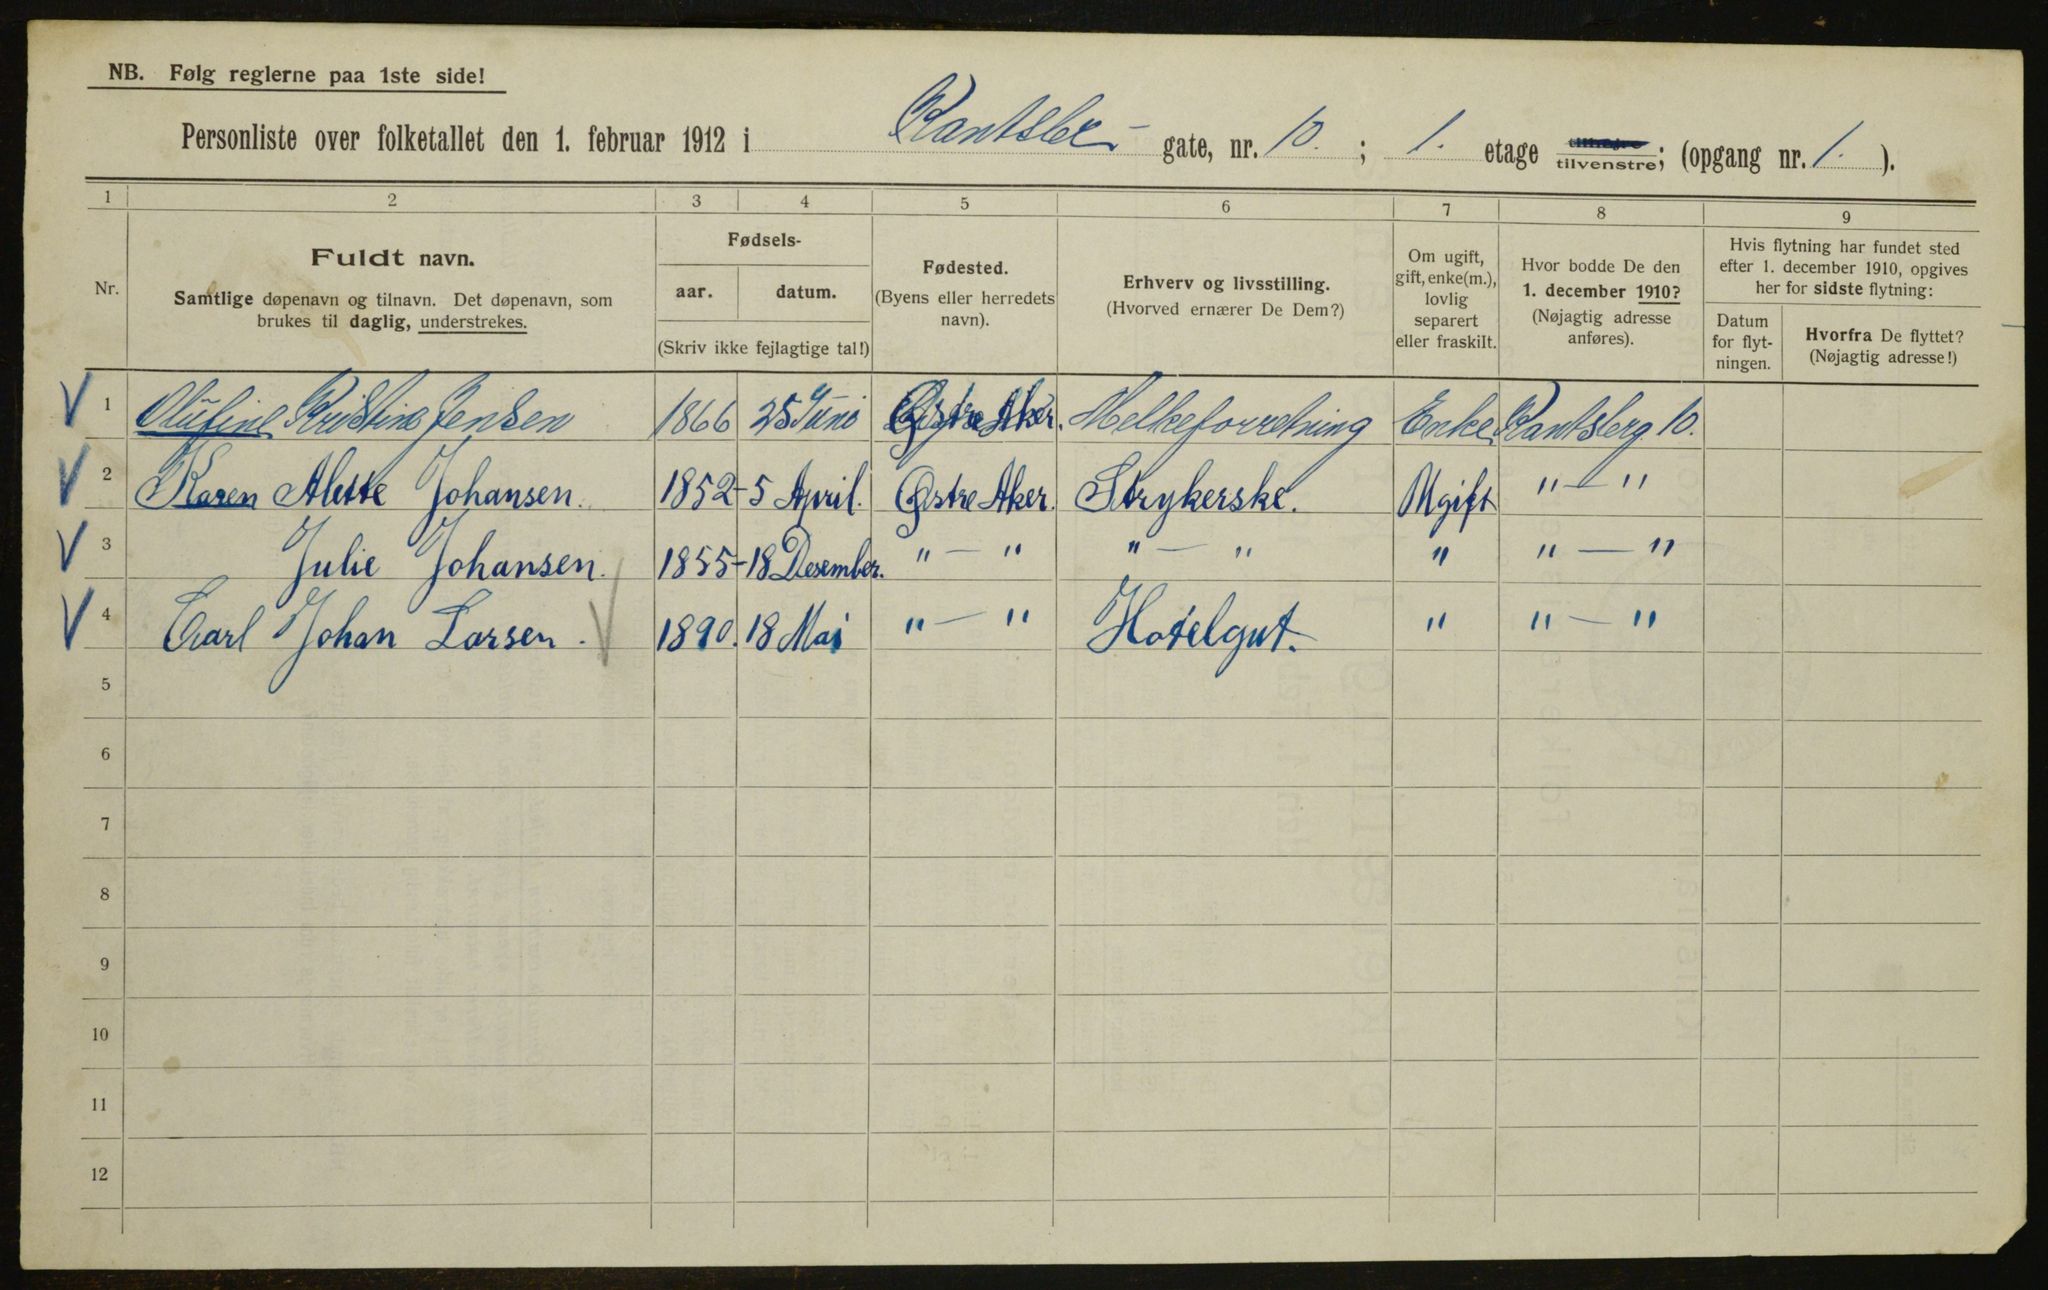 NB. Følg reglerne paa 1ste side!
Personliste over folketallet den 1. februar 1912 i Kantsler- gate, nr. 10. ; 1. etage tilvenstre; (opgang nr. 1. ).
1 2 3 4 5 6 7 8 9
Nr.
Fuldt navn.
Samtlige døpenavn og tilnavn. Det døpenavn, som
brukes til daglig, understrekes.
Fødsels-
aar. datum.
(Skriv ikke fejlagtige tal!)
Fødested.
(Byens eller herredets
navn).
Erhverv og livsstilling.
(Hvorved ernærer De Dem?)
Om ugift,
gift, enke(m.),
lovlig
separert
eller fraskilt.
Hvor bodde De den
1. december 1910?
(Nøjagtig adresse
anføres).
Hvis flytning har fundet sted
efter 1. december 1910, opgives
her for sidste flytning:
Datum
for flyt-
ningen.
Hvorfra De flyttet?
(Nøjagtig adresse!)
1 Olufine Kristine Jensen 1866 25 Juni Østre Aker. Melkeforretning Enke Kantslerg. 10.
2 Karen Alette Johansen. 1852 - 5 April. Østre Aker. Strykerske. Ugift " — "
3 Julie Johansen. 1855 - 18 Desember. " — " " — " " " — "
4 Carl Johan Larsen. 1890. 18 Mai " — " Hotelgut. " " — "
5
6
7
8
9
10
11
12